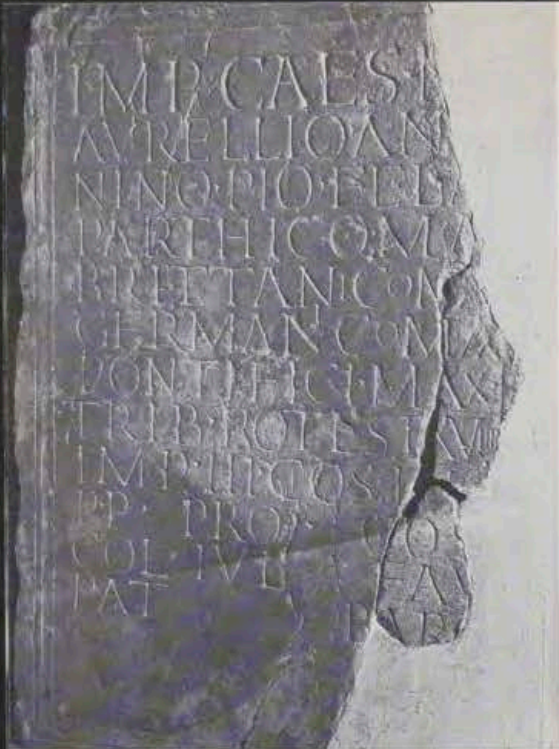 IMP·CAES·
AVRELLIO·AN
NINO·PIO·FEL·
PARTHICO·MA
BRITTANICO·M
GERMAN·CO·MAX
PONTIFICI·MAX
TRIB·POTEST·XVIIII
IMP·III·COS·I
P·P· PROC· CO
COL·IVL· A FAV
PAT BAR